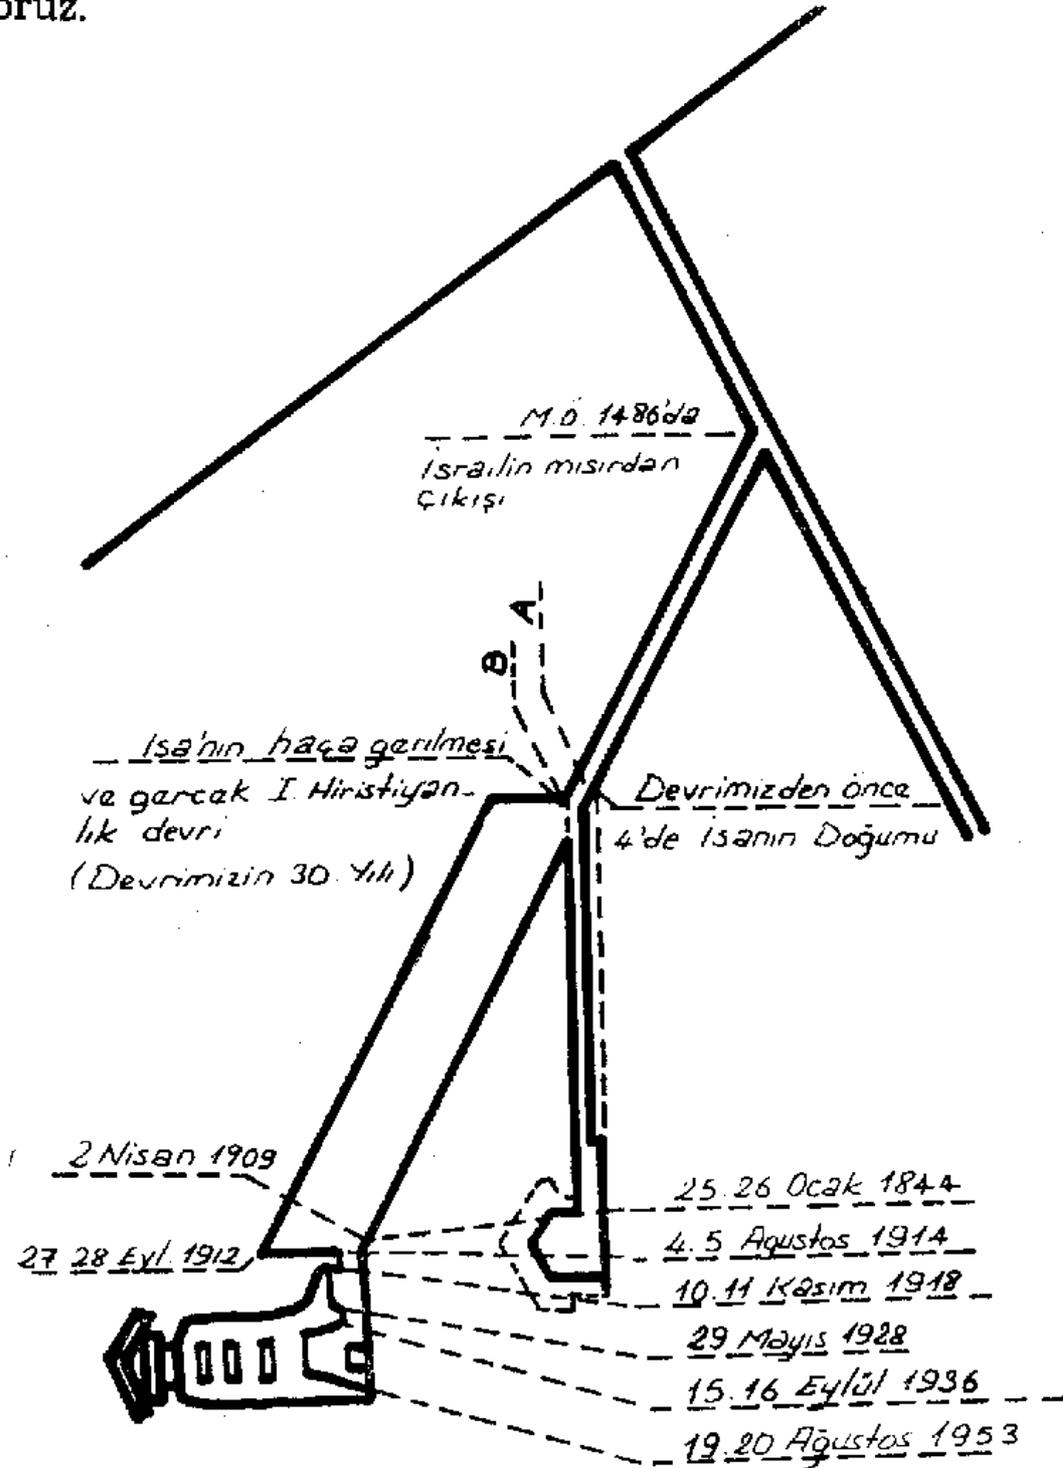 oruz.
M.Ö. 1486'da
İsrailin mısırdan
çıkışı
A
B
İsa'nın haça gerilmesi
ve gerçek I. Hıristiyan-
lık devri
(Devrimizin 30. Yılı)
Devrimizden önce
4'de İsanın Doğumu
2 Nisan 1909
27 28 Eyl. 1912
25.26 Ocak 1844
4.5 Agustos 1914
10.11 Kasım 1918
29 Mayıs 1928
15.16 Eylül 1936
19.20 Ağustos 1953